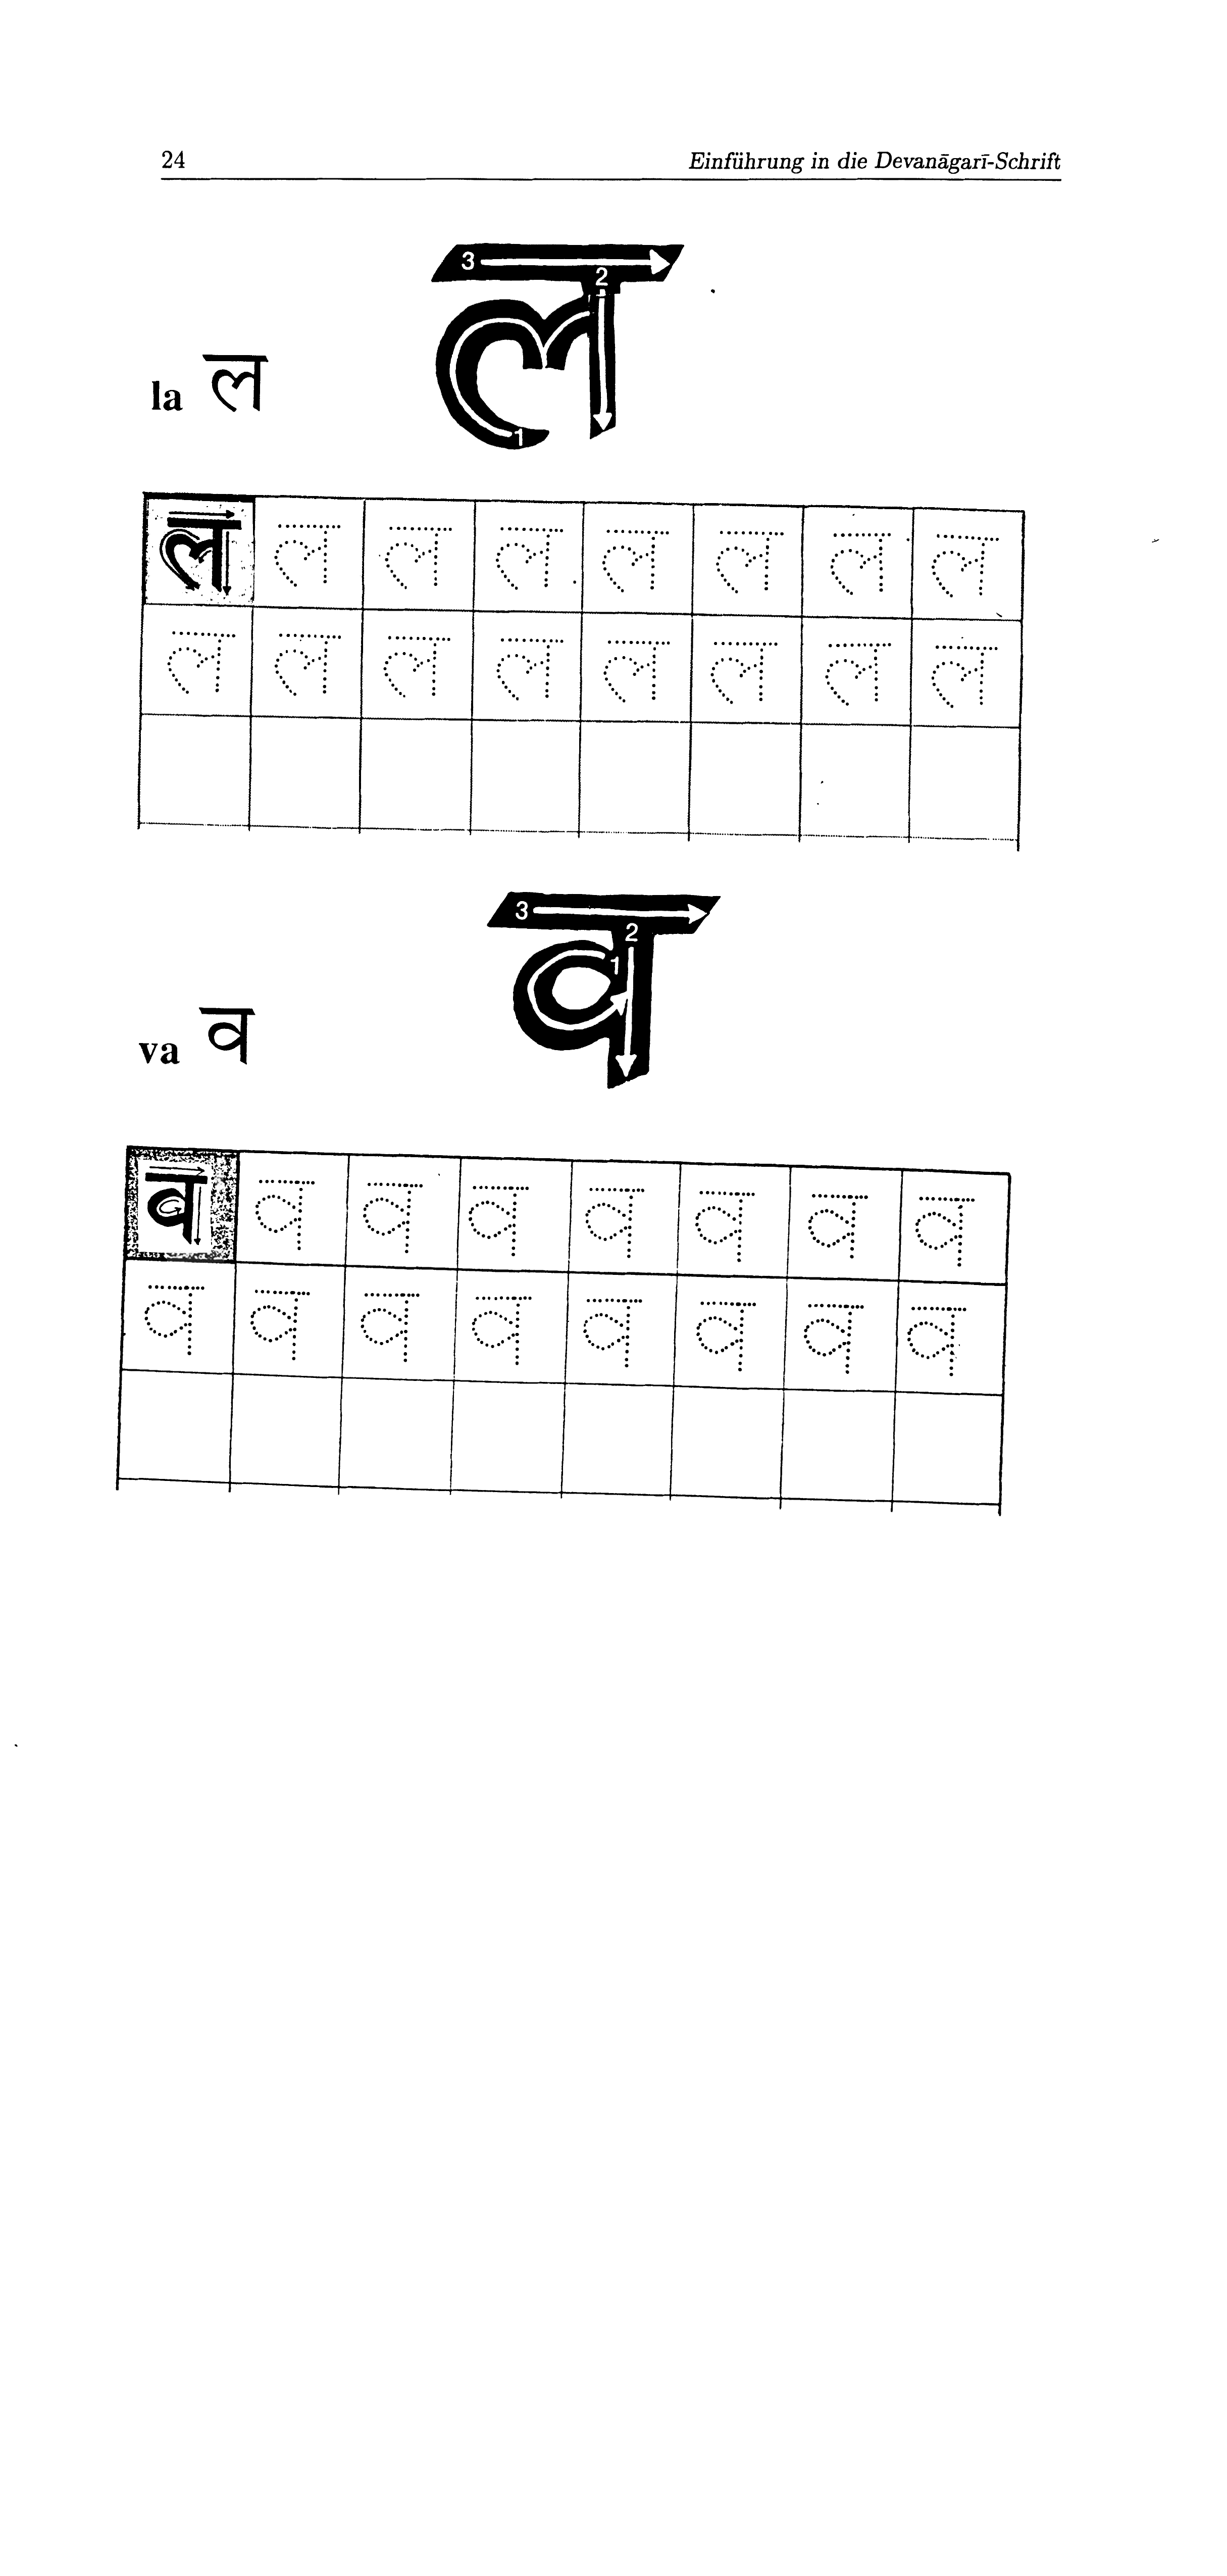 24 Einführung in die Devanāgarī-Schrift
3
2
ल
1
la ल
ल ल ल ल ल ल ल ल
ल ल ल ल ल ल ल ल
3
2
1
व
va व
व व व व व व व व
व व व व व व व व